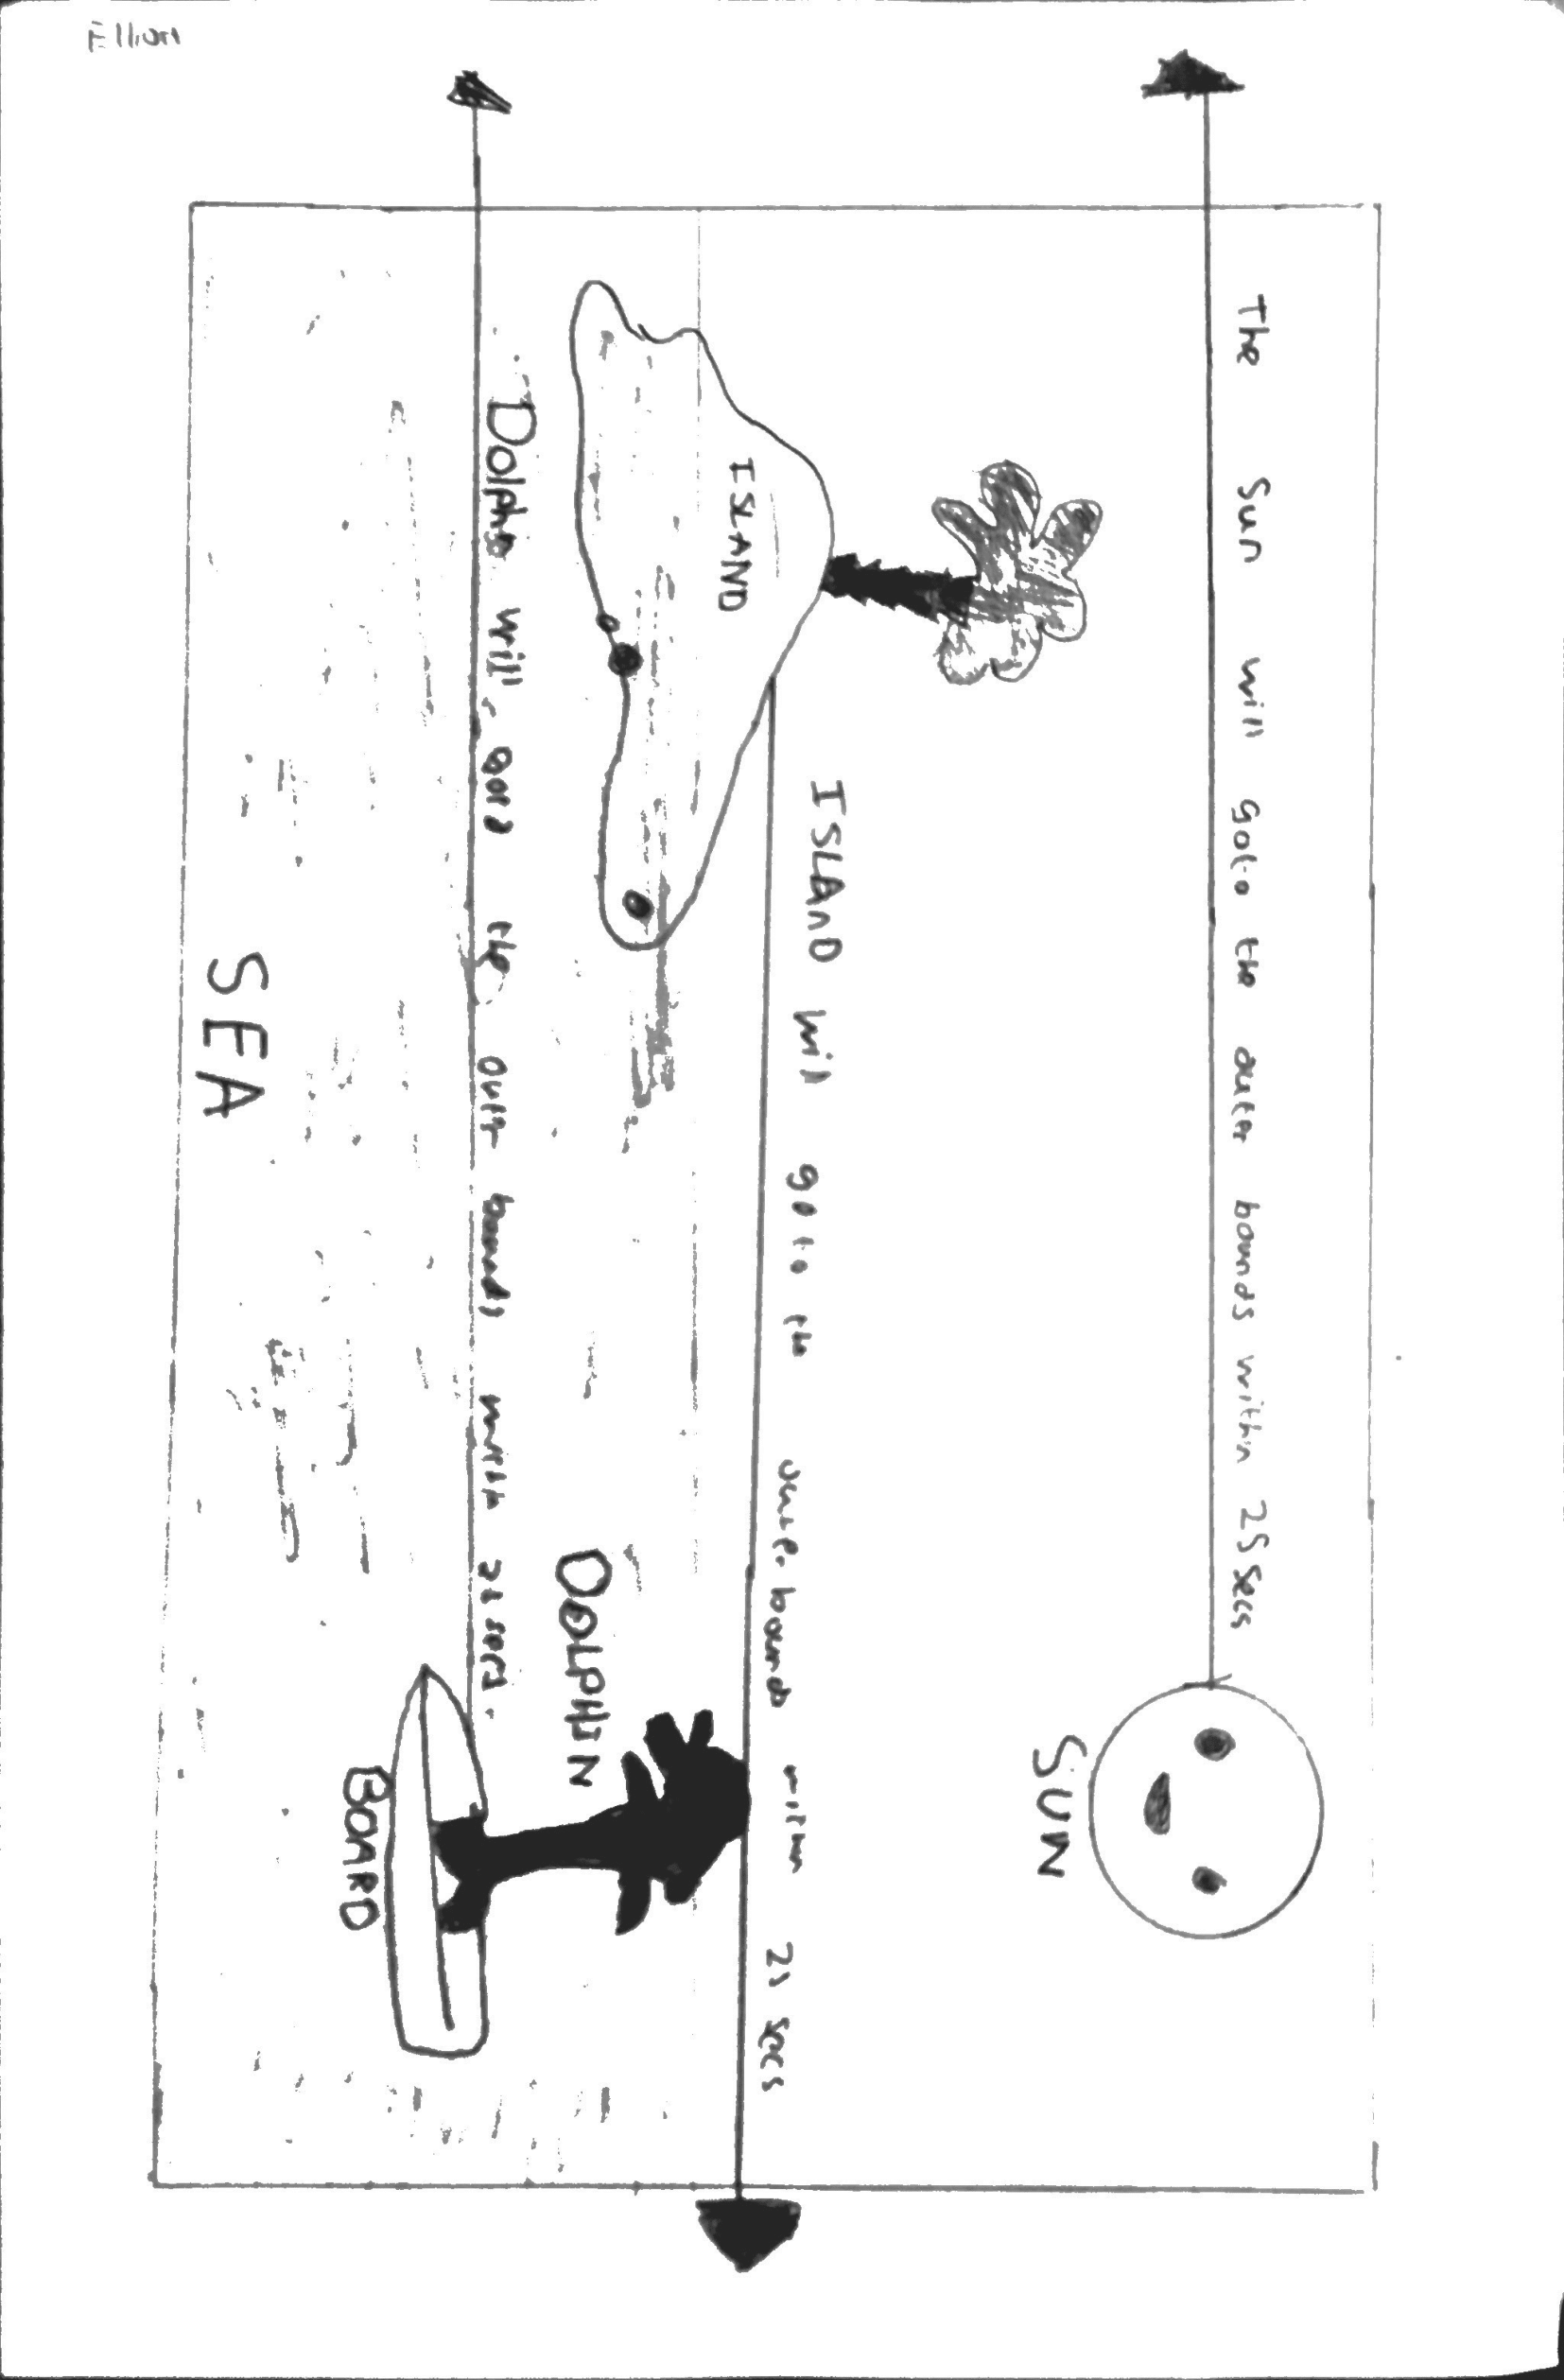 The Sun will goto the outer bounds within 25 secs
ISLAND
ISLAND will go to the outer bounds within 25 secs
SUN
Dolphin will goto the outer bounds within 25 secs.
DOLPHIN
BOARD
SEA